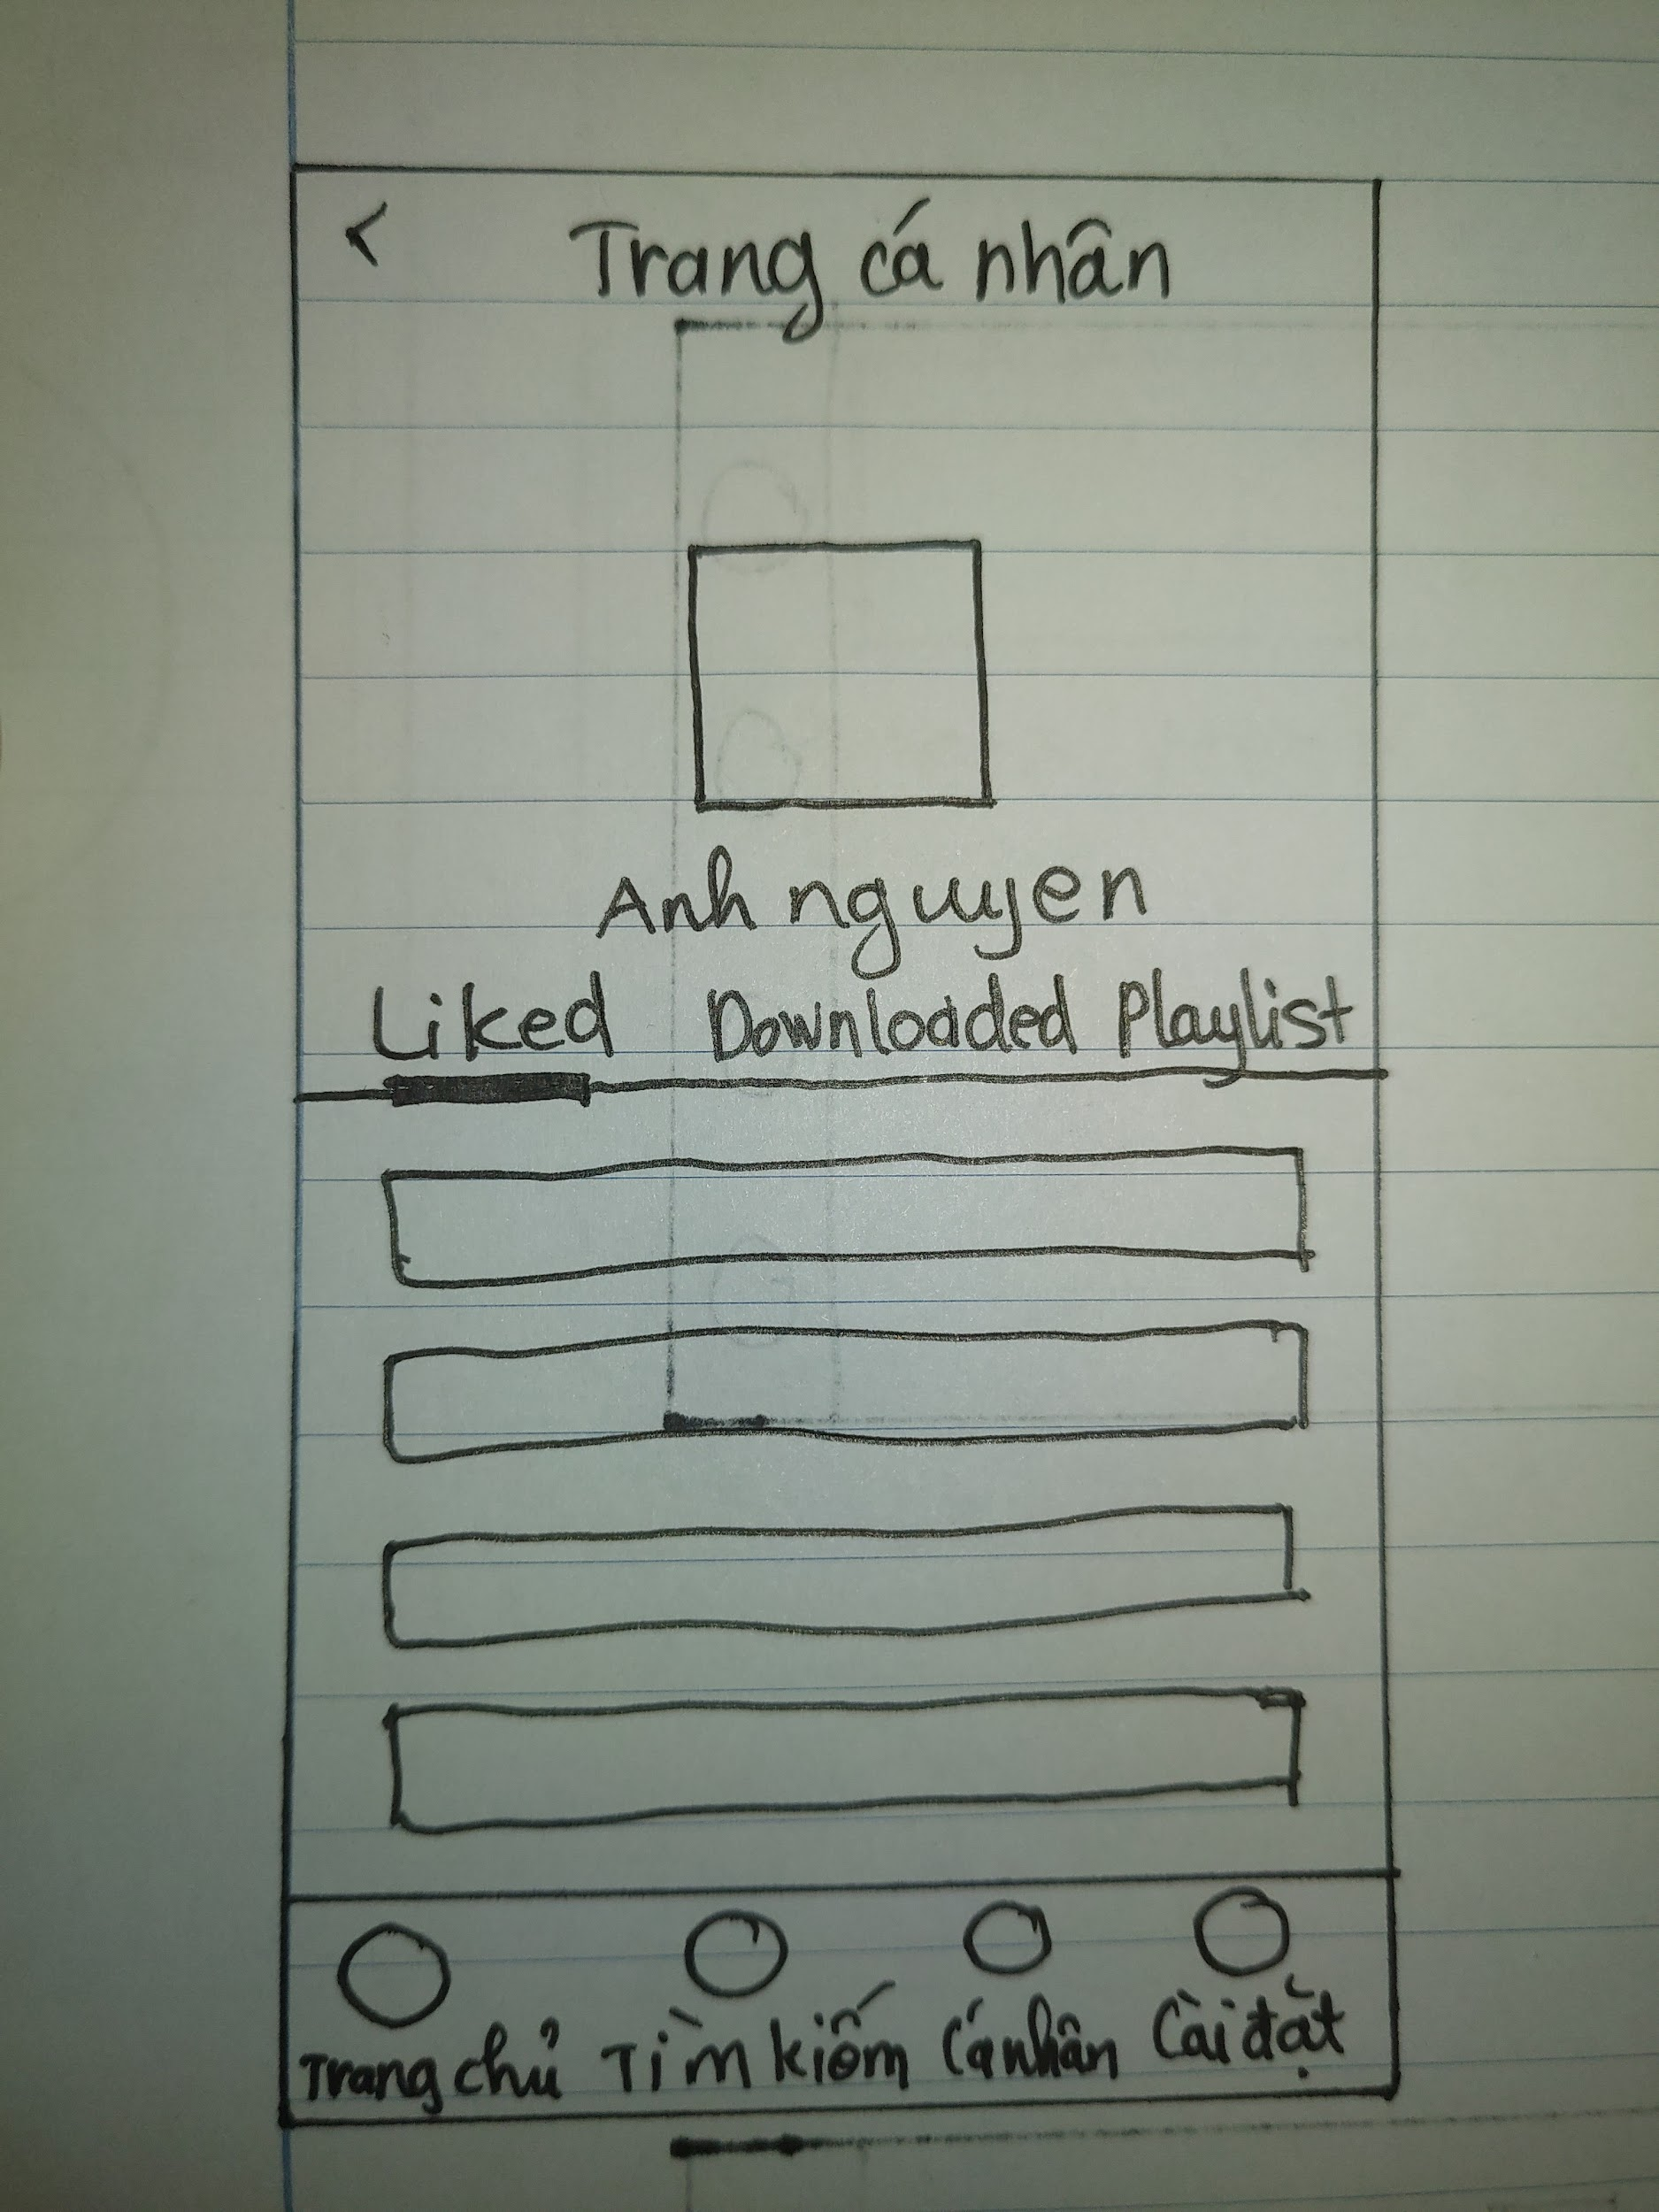 < Trang cá nhân
Anh nguyen
Liked Downloaded Playlist
Trang chủ Tìm kiếm Cá nhân Cài đặt